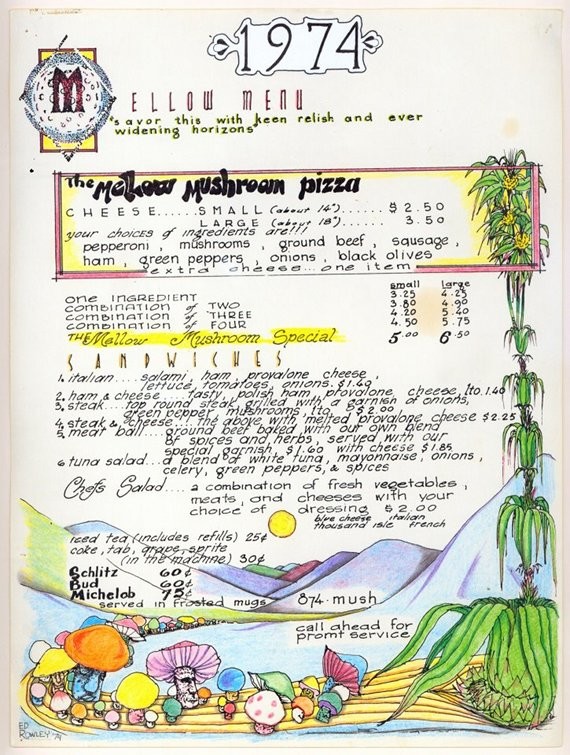 1974
MELLOW MENU
"savor this with keen relish and ever
widening horizons"
The Mellow Mushroom pizza
CHEESE......SMALL (about 14")......$2.50
LARGE (about 18")...... 3.50
your choices of ingredients are!!!
pepperoni, mushrooms, ground beef, sausage,
ham, green peppers, onions, black olives
extra cheese...one item
small large
one INGREDIENT 3.25 4.25
COMBINATION of TWO 3.80 4.90
COMBINATION of THREE 4.20 5.40
COMBINATION of FOUR 4.50 5.75
THE Mellow Mushroom Special 5.00 6.50
SANDWICHES
1. italian.... salami, ham, provalone cheese,
lettuce, tomatoes, onions. $1.40
2. ham & cheese.... tasty, polish ham, provalone cheese, lto. 1.40
3. steak.... top round steak grilled with a garnish of onions,
green pepper, mushrooms, lto. $2.00
4. steak & cheese... the above with melted provalone cheese $2.25
5. meat ball.... ground beef baked with our own blend
of spices and herbs, served with our
special garnish. $1.60 with cheese $1.85
6. tuna salad... a blend of white tuna, mayonnaise, onions,
celery, green peppers, & spices
Chef's Salad.... a combination of fresh vegetables,
meats, and cheeses with your
choice of dressing. $2.00
blue cheese italian
thousand isle french
iced tea (includes refills) 25¢
coke, tab, grape, sprite
(in the machine) 30¢
Schlitz 60¢
Bud 60¢
Michelob 75¢
served in frosted mugs
874-mush
call ahead for
promt service
ED
ROWLEY '74